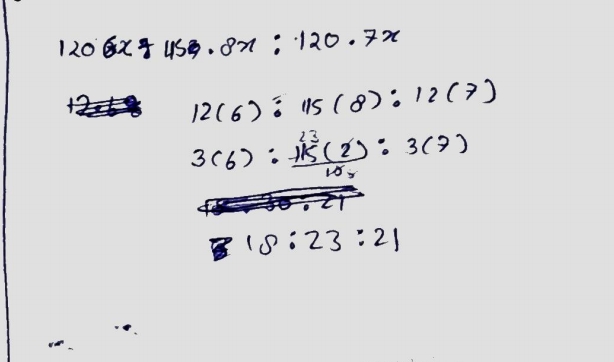 120 6x : 115.8x : 120.7x
12(6) : 115(8) : 12(7)
3(6) : 115(2)/10 : 3(7)
23
18 : 23 : 21